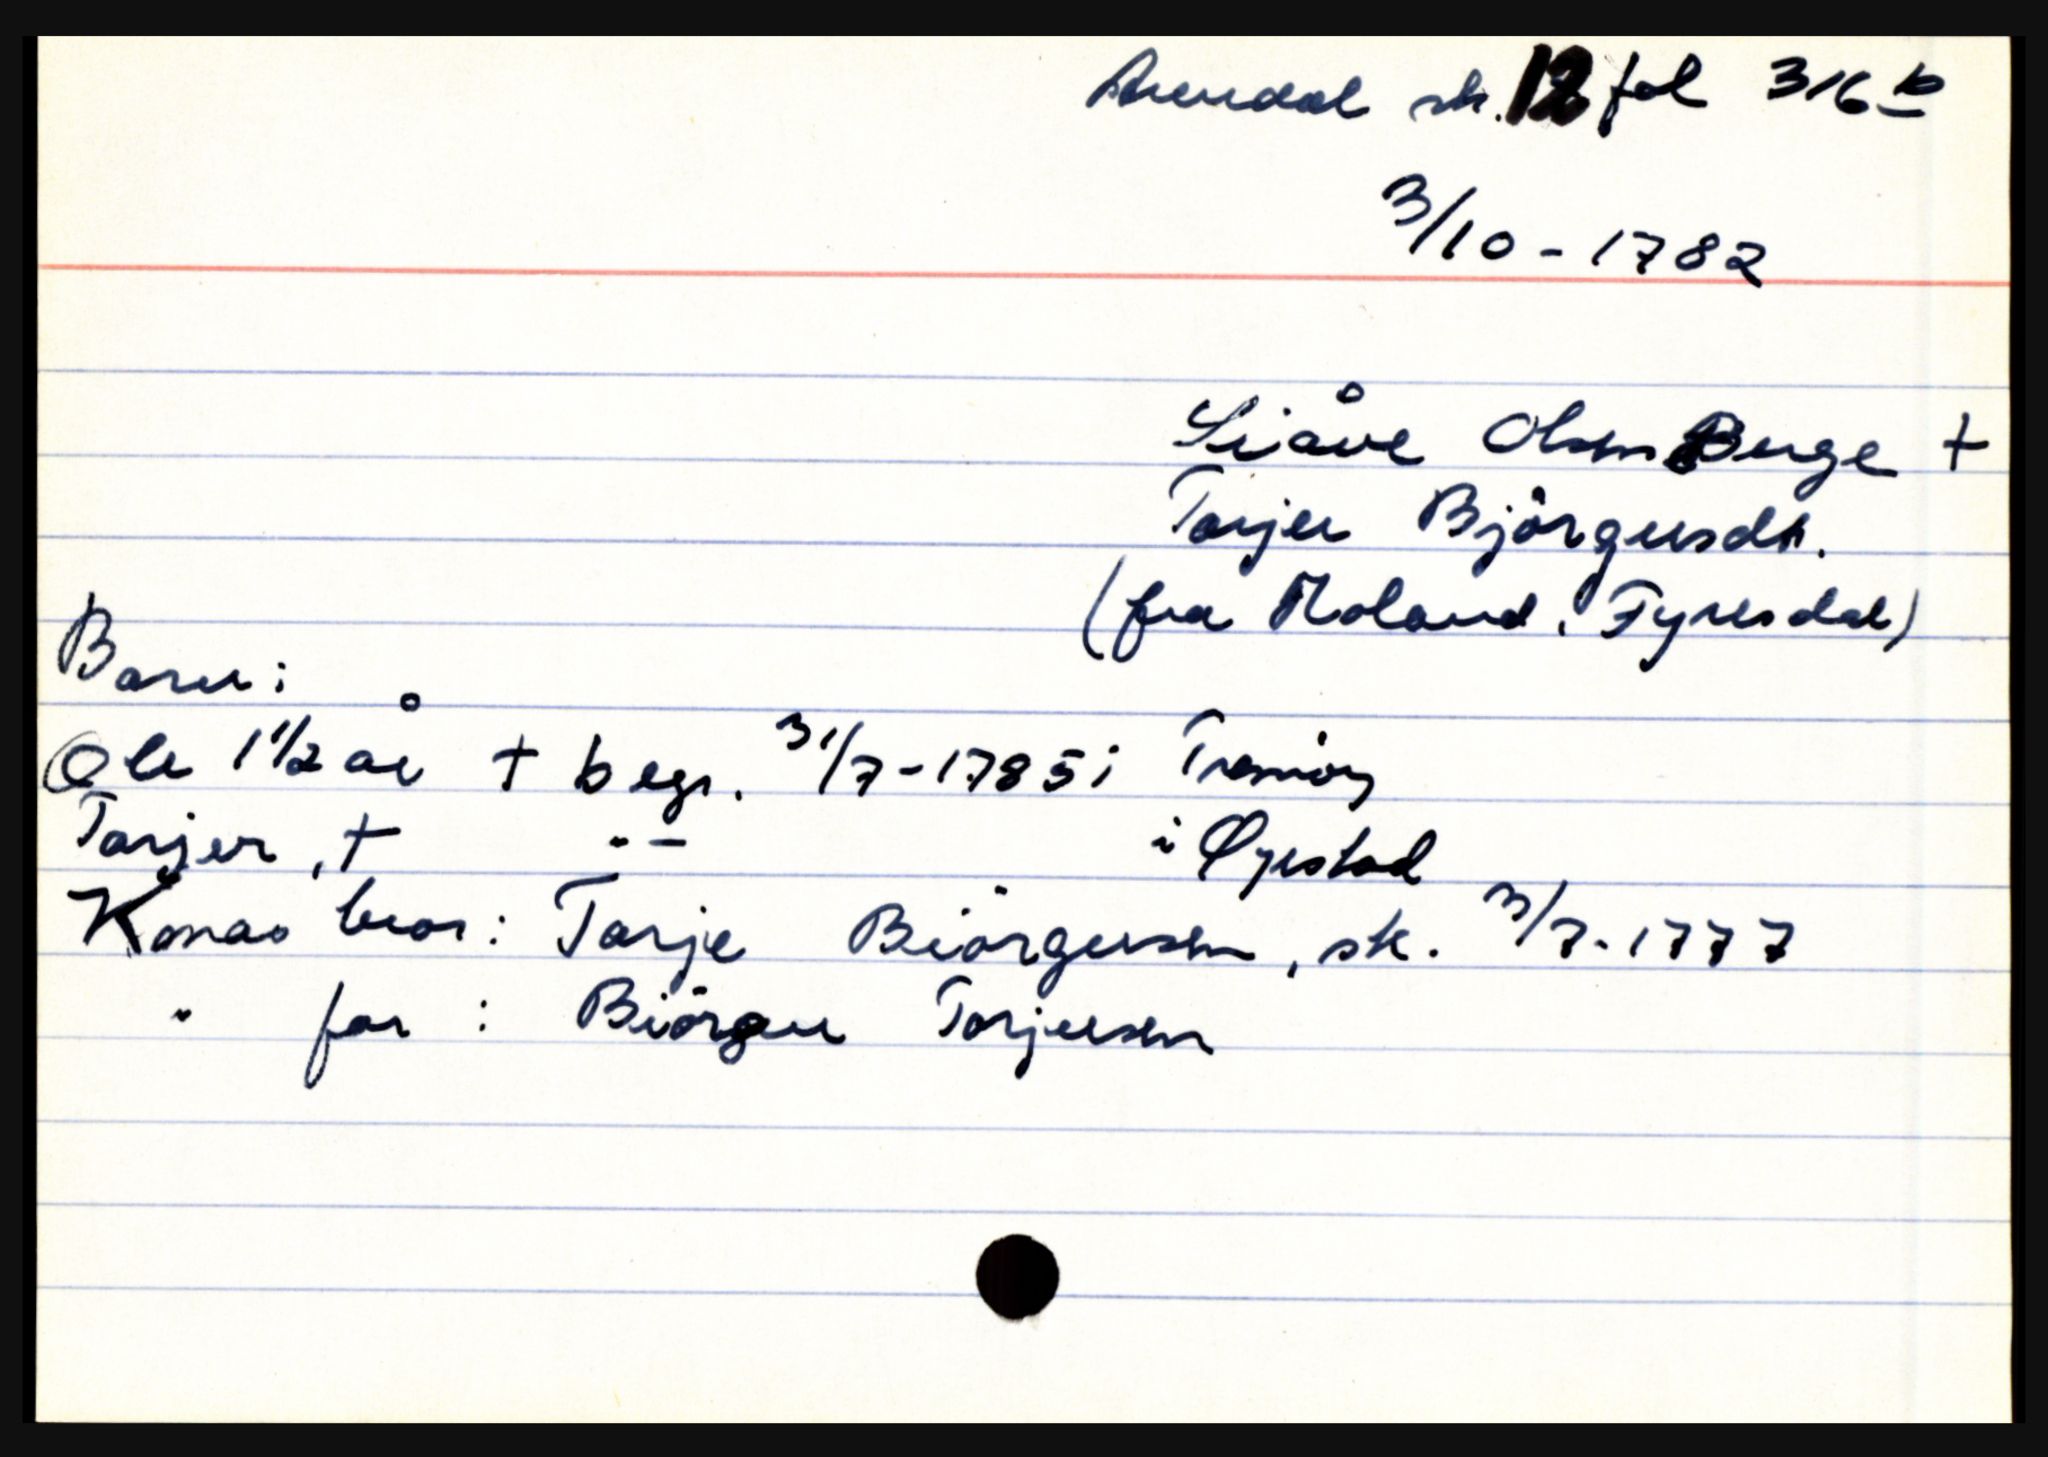 Arendal sk. 12 fol 316 b
3/10 - 1782
Siåve Olsen Berge +
Torjer Björgusdt.
(fra Moland, Fyresdal)
Barn:
Ole 1 1/2 år + begr. 31/7 - 1785 i Tromöy
Torjer, + " - i Øyestad
Konas bror: Torje Biörgusen, sk. 3/7 - 1777
" far : Biörgu Torjusen